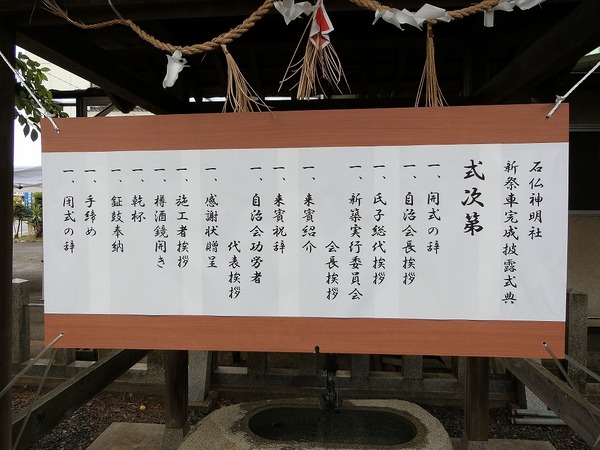 石仏神明社
新祭車完成披露式典
式次第
一、開式の辞
一、自治会長挨拶
一、氏子総代挨拶
一、新築実行委員会
会長挨拶
一、来賓紹介
一、来賓祝辞
一、自治会功労者
代表挨拶
一、感謝状贈呈
一、施工者挨拶
一、樽酒鏡開き
一、乾杯
一、鉦鼓奉納
一、手締め
一、閉式の辞